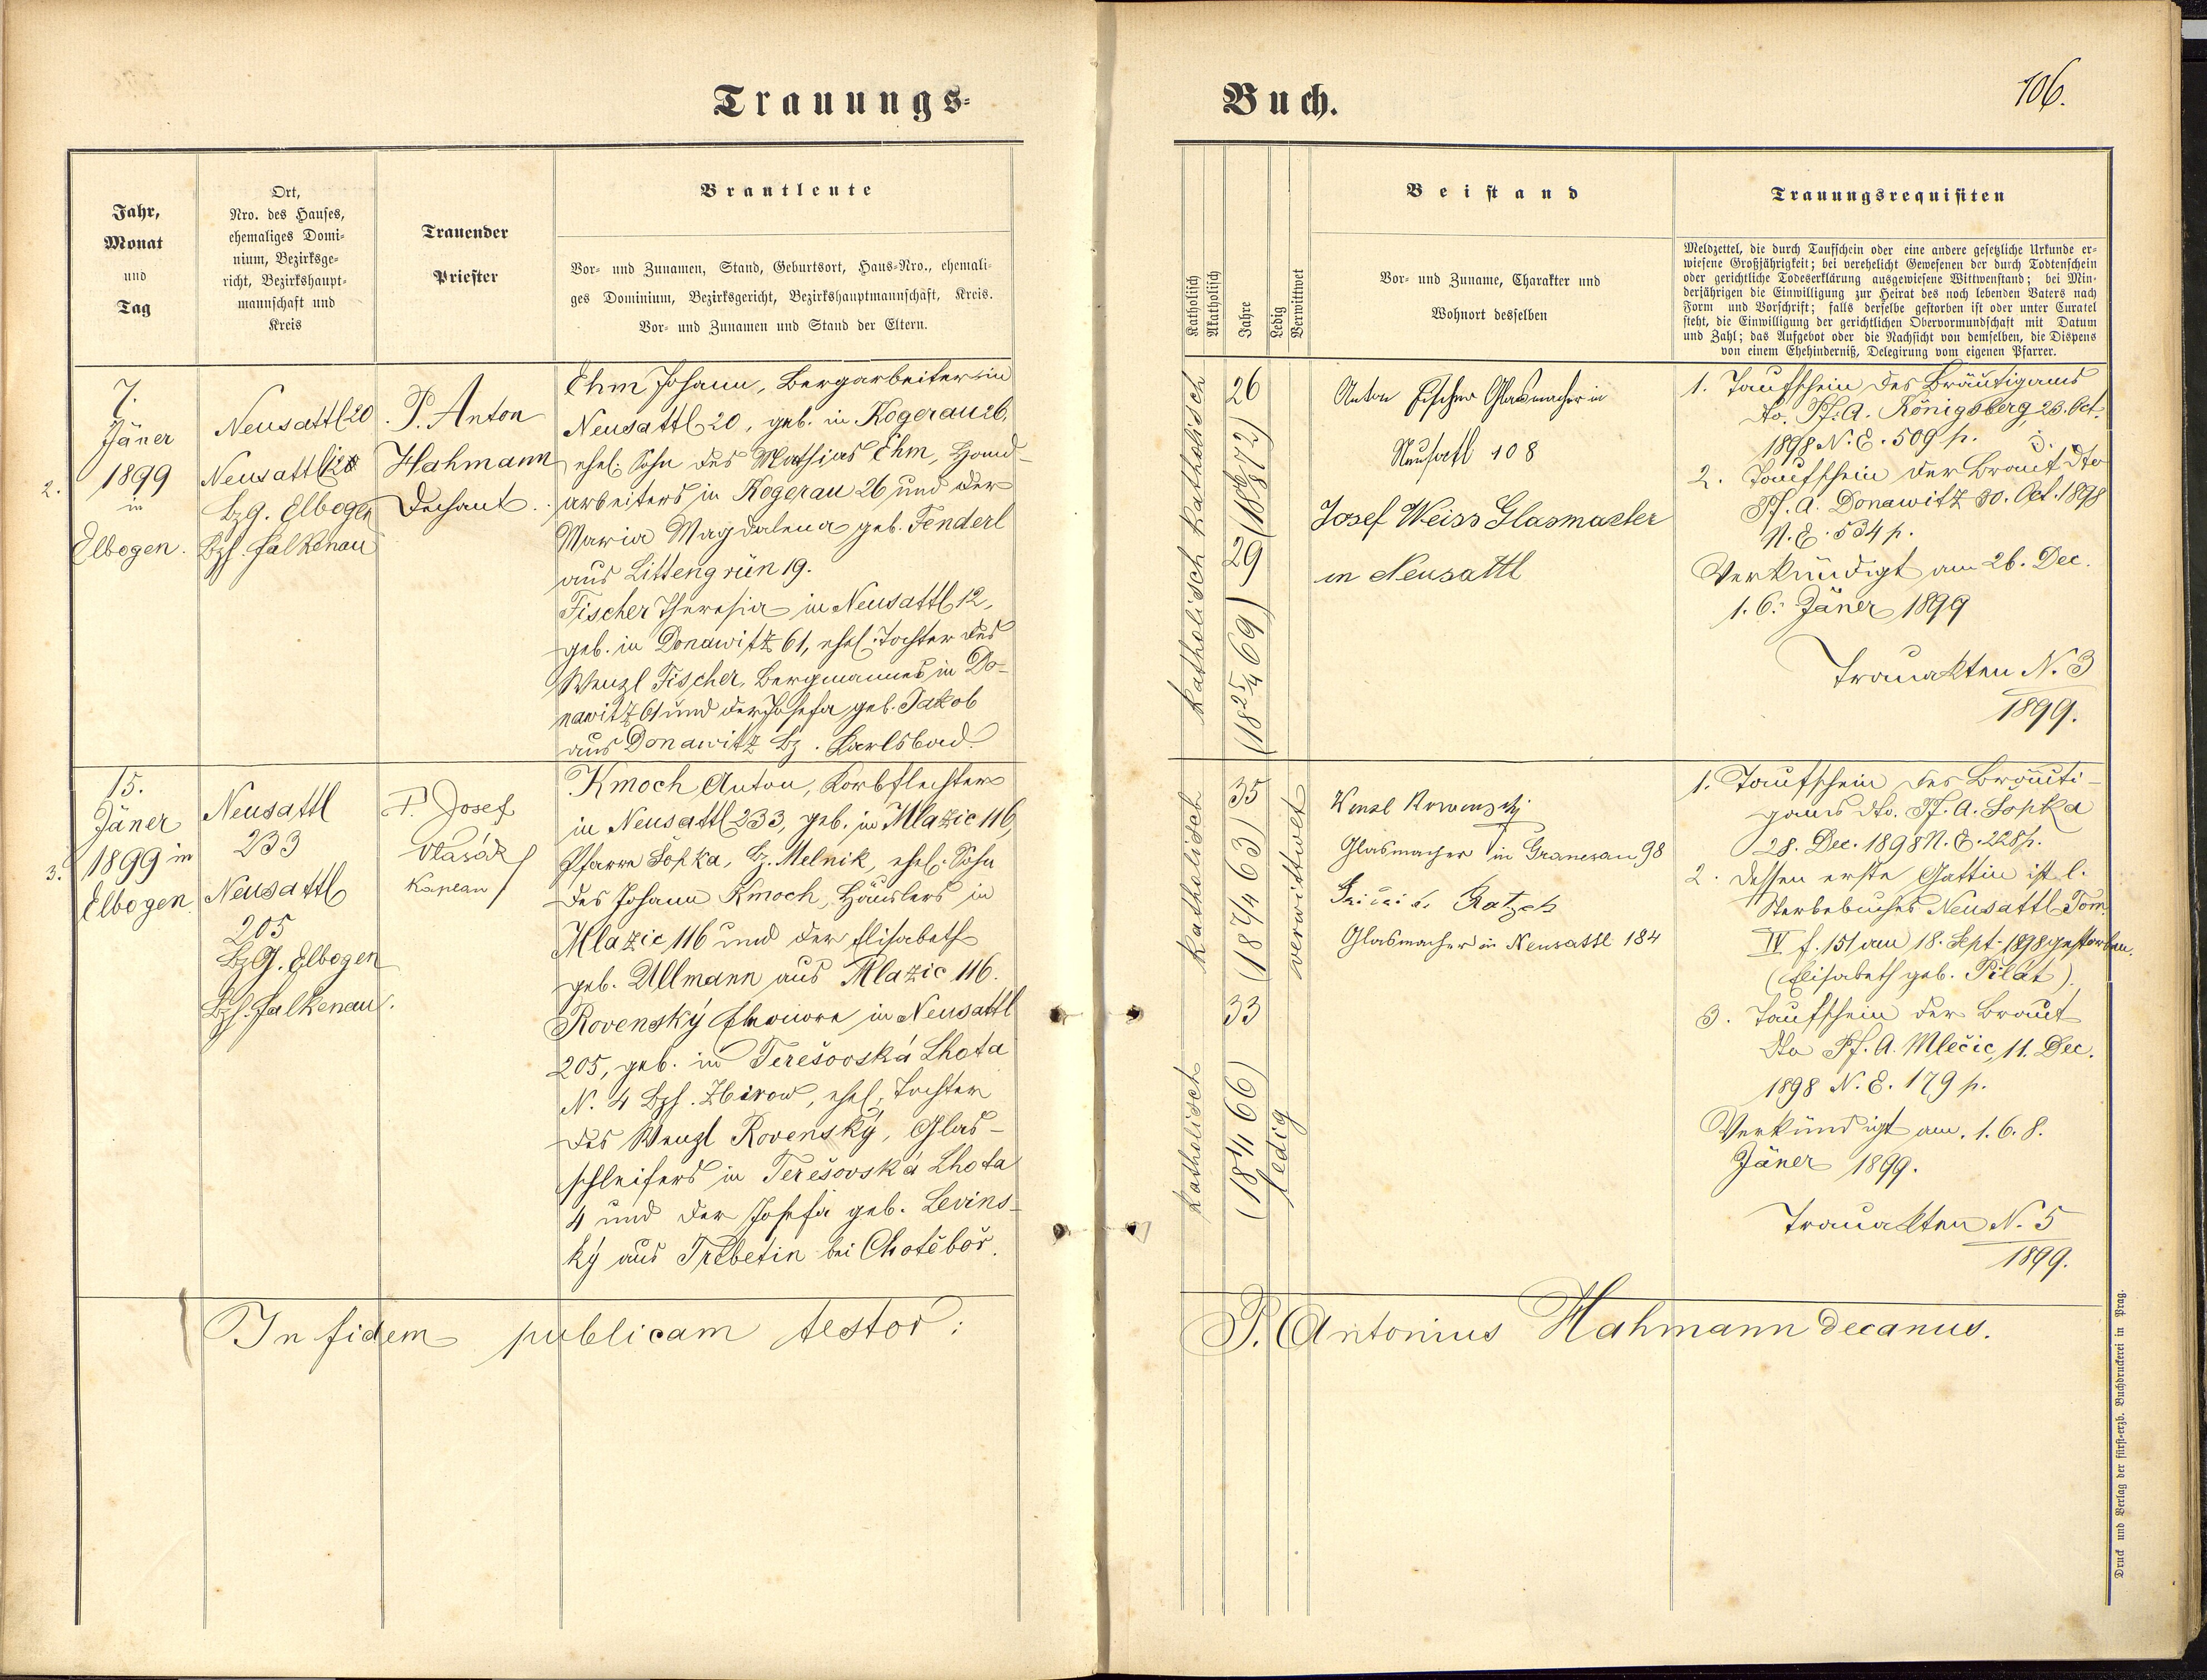 Trauungs-
Buch.
106.
Jahr,
Monat
und
Tag
Ort,
Nro. des Hauses,
ehemaliges Domi-
nium, Bezirksge-
richt, Bezirkshaupt-
mannschaft und
Kreis
Trauender
Priester
Brautleute
Vor- und Zunamen, Stand, Geburtsort, Haus-Nro., ehemali-
ges Dominium, Bezirksgericht, Bezirkshauptmannschaft, Kreis.
Vor- und Zunamen und Stand der Eltern.
Katholisch
Akatholisch
Jahre
Ledig
Verwittwet
Beistand
Vor- und Zuname, Charakter und
Wohnort desselben
Trauungsrequisiten
Meldzettel, die durch Taufschein oder eine andere gesetzliche Urkunde er-
wiesene Großjährigkeit; bei verehelicht Gewesenen der durch Todtenschein
oder gerichtliche Todeserklärung ausgewiesene Wittwenstand; bei Min-
derjährigen die Einwilligung zur Heirat des noch lebenden Vaters nach
Form und Vorschrift; falls derselbe gestorben ist oder unter Curatel
steht, die Einwilligung der gerichtlichen Obervormundschaft mit Datum
und Zahl; das Aufgebot oder die Nachsicht von demselben, die Dispens
von einem Ehehinderniß, Delegirung vom eigenen Pfarrer.
2.
7.
Jäner
1899
in
Elbogen.
Neusattl 20
Neusattl
Bzg. Elbogen
Bzh. Falkenau
P. Anton
Hahmann
Dechant.
Ehm Johann, Bergarbeiter in
Neusattl 20, geb. in Kogerau 26,
ehel. Sohn des Mathias Ehm, Hand-
arbeiters in Kogerau 26 und der
Maria Magdalena geb. Fenderl
aus Littengrün 19.
Fischer Theresia in Neusattl 12,
geb. in Donawitz 61, ehel. Tochter des
Wenzl Fischer, Bergmannes in Do-
nawitz 61 und der Josefa geb. Jakob
aus Donawitz Bz. Karlsbad.
katholisch katholisch
26
29
Anton Fischer Glasmacher in
Neusatl 108
Josef Weiss Glasmacher
in Neusattl
1. Taufschein des Bräutigams
dto. Pf. A. Königsberg, 23. Oct.
1898 N. E. 509 p.
2. Taufschein der Braut dto
Pf. A. Donawitz 30. Oct. 1898
N. E. 534 p.
Verkündigt am 26. Dec.
1. 6. Jäner 1899
Trauakten N. 3
1899.
3.
15.
Jäner
1899 in
Elbogen
Neusattl
233
Neusattl
205
BzG. Elbogen
Bzh. Falkenau.
P. Josef
Vlasák
Kaplan
Kmoch Anton, Korbflechter
in Neusattl 233, geb. in Mlazic 116,
Pfarre Šopka, Bz. Melnik, ehel. Sohn
des Johann Kmoch, Häuslers in
Mlazic 116 und der Elisabeth
geb. Ullmann aus Mlazic 116.
Rovenský Eleonora in Neusattl
205, geb. in Terešovská Lhota
N. 4 Bzh. Zbirow, ehel. Tochter
des Wenzl Rovenský, Glas-
schleifers in Terešovská Lhota
4 und der Josefa geb. Levins-
ký aus Třebetin bei Chotěboř.
katholisch
katholisch
35
33
verwittwet
ledig
Wenzl
Glasmacher in Granesau 98
Ratzek
Glasmacher in Neusattl 184
1. Taufschein des Bräuti-
gams dto. Pf. A. Sopka
28. Dec. 1898 N. E. 228 p.
2. Dessen erste Gattin ist l.
Sterbebuches Neusattl Tom.
IV f. 151 am 18. Sept. 1898 gestorben.
(Elisabeth geb. Pilát).
3. Taufschein der Braut
dto Pf. A. Mlečic, 11. Dec.
1898 N. E. 179 p.
Verkündigt am. 1. 6. 8.
Jäner 1899.
Trauakten N. 5
1899.
In fidem publicam testor:
P. Antonius Hahmann decanus.
Druck und Verlag der fürst-erzb. Buchdruckerei in Prag.